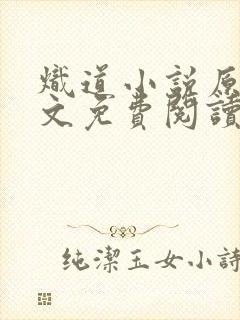 熾道小說原
文免費閱讀
純潔玉女小詩